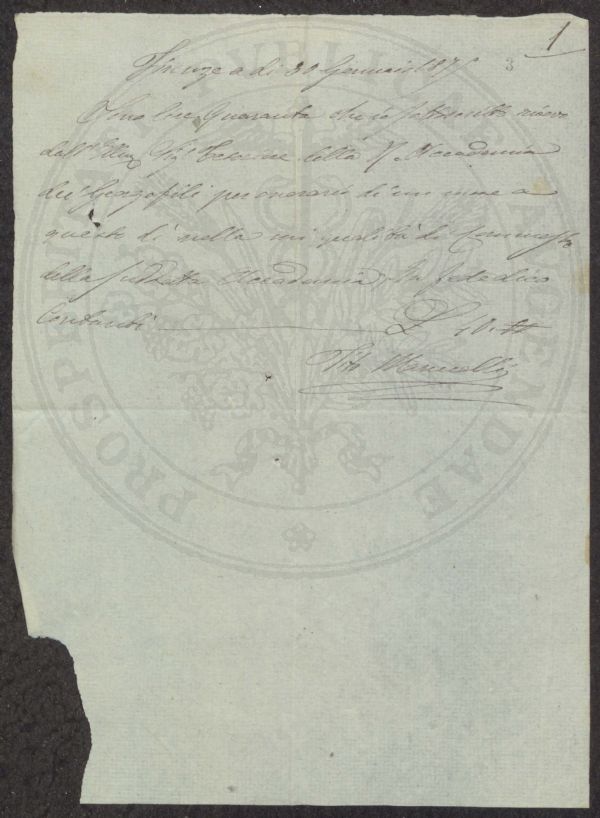 1
3
Firenze a dì 30 Gennaio 187
Sono lire Quaranta che io sottoscritto ricevo
dall' Sig. della R. Accademia
dei Georgofili per onorario di un mese a
questo dì nella mia qualità di Commesso
della suddetta Accademia, In fede dico
Contanti L
Mannelli
PROSPERITATI PUBLICAE AUGENDAE